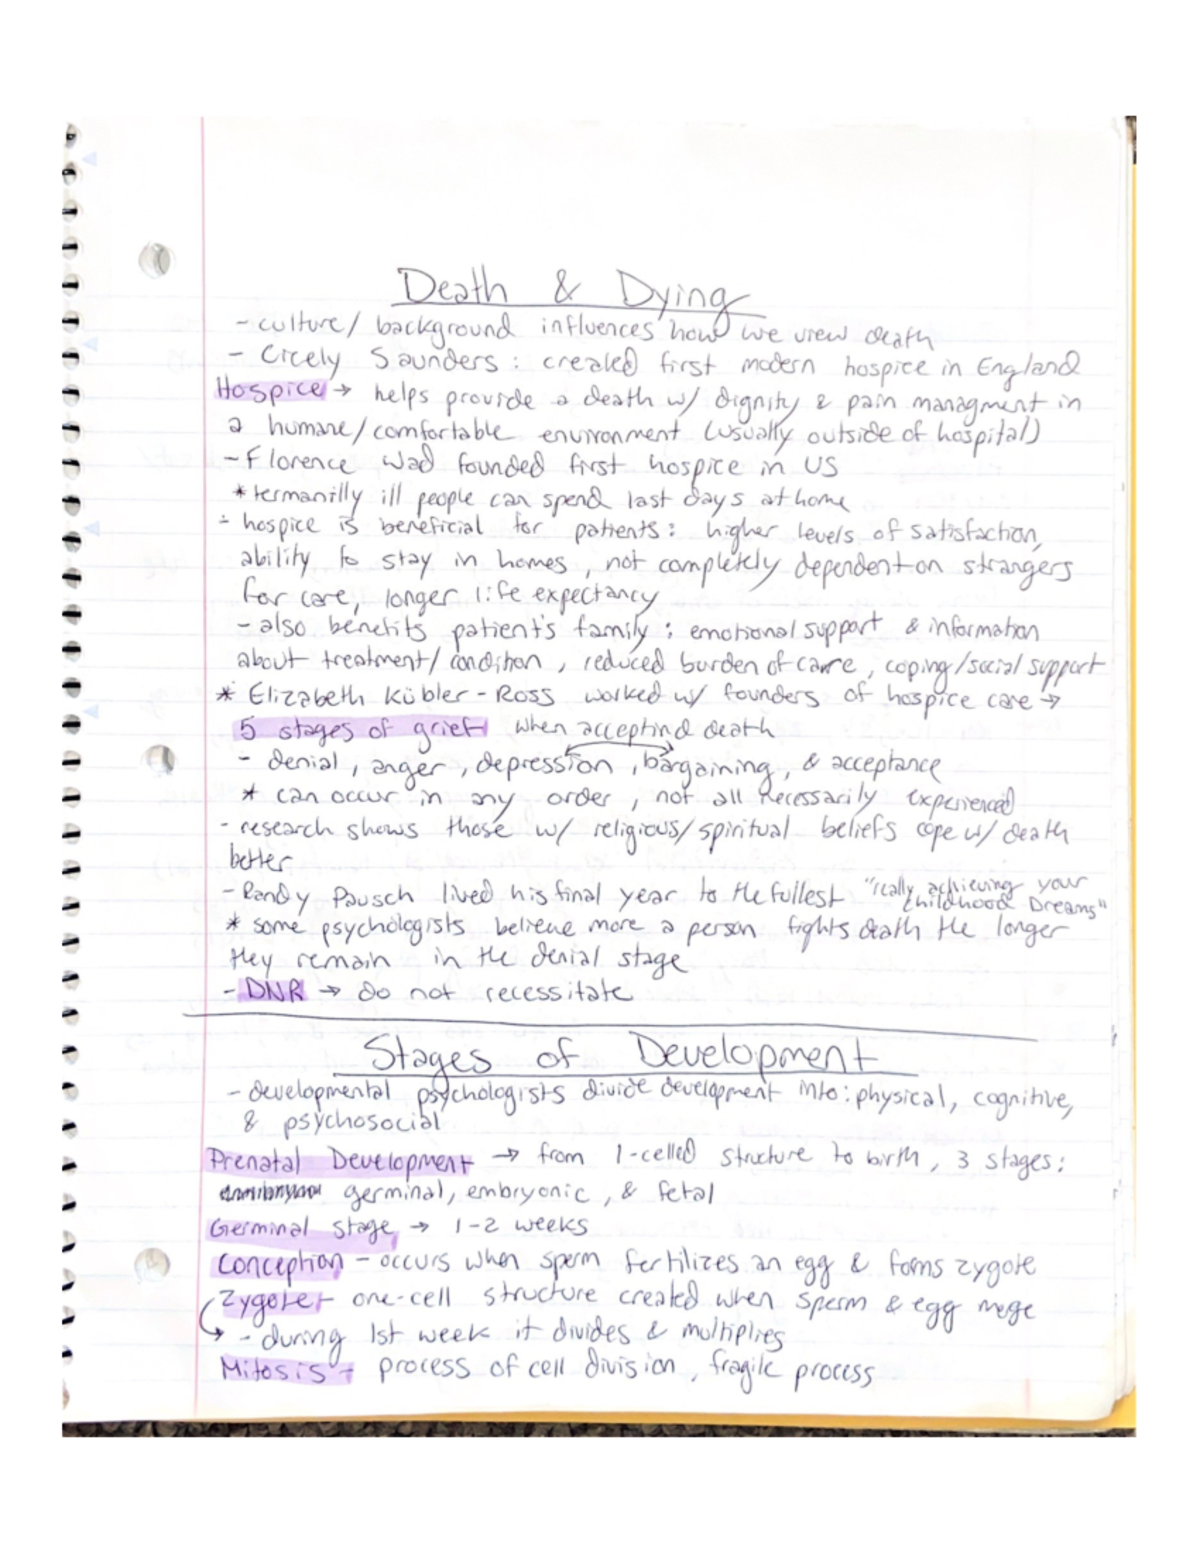 Death & Dying
- culture/ background influences how we view death
- Cicely Saunders : created first modern hospice in England
Hospice → helps provide a death w/ dignity & pain managment in
a humane/comfortable environment (usually outside of hospital)
- Florence Wad founded first hospice in US
* termanilly ill people can spend last days at home
- hospice is beneficial for patients : higher levels of satisfaction,
ability to stay in homes , not completely dependent on strangers
for care, longer life expectancy
- also benefits patient's family : emotional support & information
about treatment/ condition , reduced burden of care , coping/social support
* Elizabeth Kübler-Ross worked w/ founders of hospice care →
5 stages of grief when acceptind death
- denial , anger , depression , bargaining , & acceptance
* can occur in any order , not all necessarily experienced
- research shows those w/ religious/spiritual beliefs cope w/ death
better
- Randy Pausch lived his final year to the fullest "really achieving your
childhood Dreams"
* some psychologists believe more a person fights death the longer
they remain in the denial stage
- DNR → do not recessitate
Stages of Development
- developmental psychologists divide development into : physical, cognitive,
& psychosocial
Prenatal Development → from 1-celled structure to birth , 3 stages :
germinal, embryonic , & fetal
Germinal stage → 1-2 weeks
Conception - occurs when sperm fertilizes an egg & forms zygote
Zygote - one-cell structure created when sperm & egg mege
↳ - during 1st week it divides & multiplies
Mitosis - process of cell division , fragile process